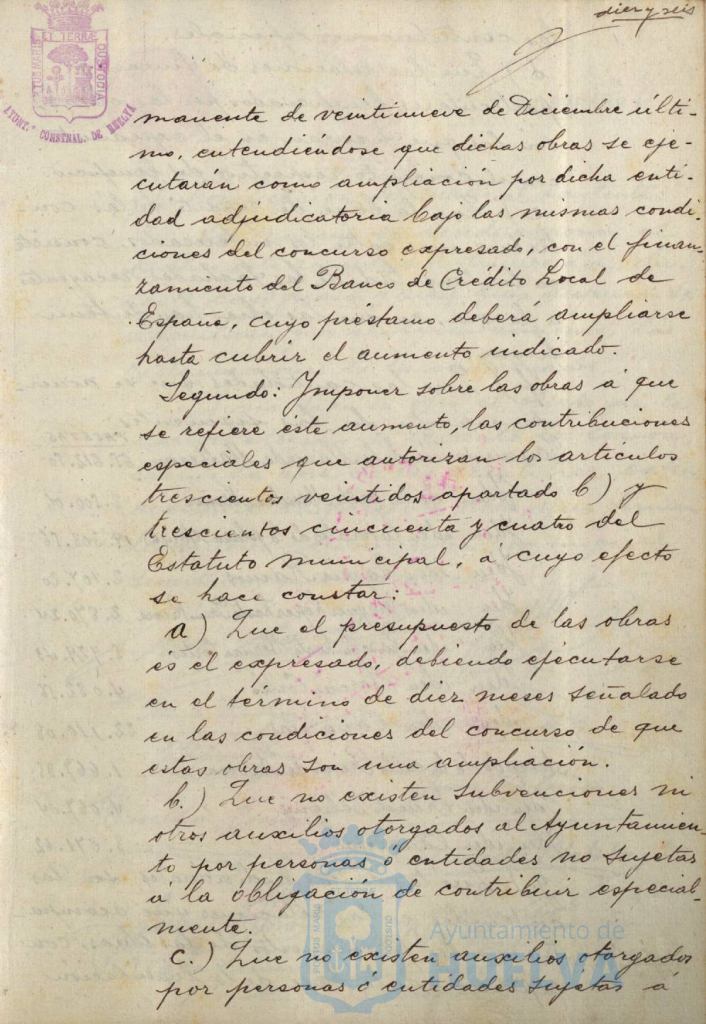 diez y seis
PORTUS MARIS ET TERRAE CUSTODIA
AYUNT.º CONSTNAL. DE HUELVA
manente de veintinueve de Diciembre últi-
mo, entendiéndose que dichas obras se eje-
cutarán como ampliación por dicha enti-
dad adjudicatoria bajo las mismas condi-
ciones del concurso expresado, con el finan-
zamiento del Banco de Crédito Local de
España, cuyo préstamo deberá ampliarse
hasta cubrir el aumento indicado.
Segundo: Ymponer sobre las obras á que
se refiere éste aumento, las contribuciones
especiales que autorizan los artículos
trescientos veintidos apartado b) y
trescientos cincuenta y cuatro del
Estatuto municipal, á cuyo efecto
se hace constar:
a) Que el presupuesto de las obras
és el expresado, debiendo ejecutarse
en el término de diez meses señalado
en las condiciones del concurso de que
estas obras son una ampliación.
b.) Que no existen subvenciones ni
otros auxilios otorgados al Ayuntamien-
to por personas ó entidades no sujetas
á la obligación de contribuir especial-
mente.
c.) Que no existen auxilios otorgados
por personas ó entidades sujetas á
Ayuntamiento de
HUELVA